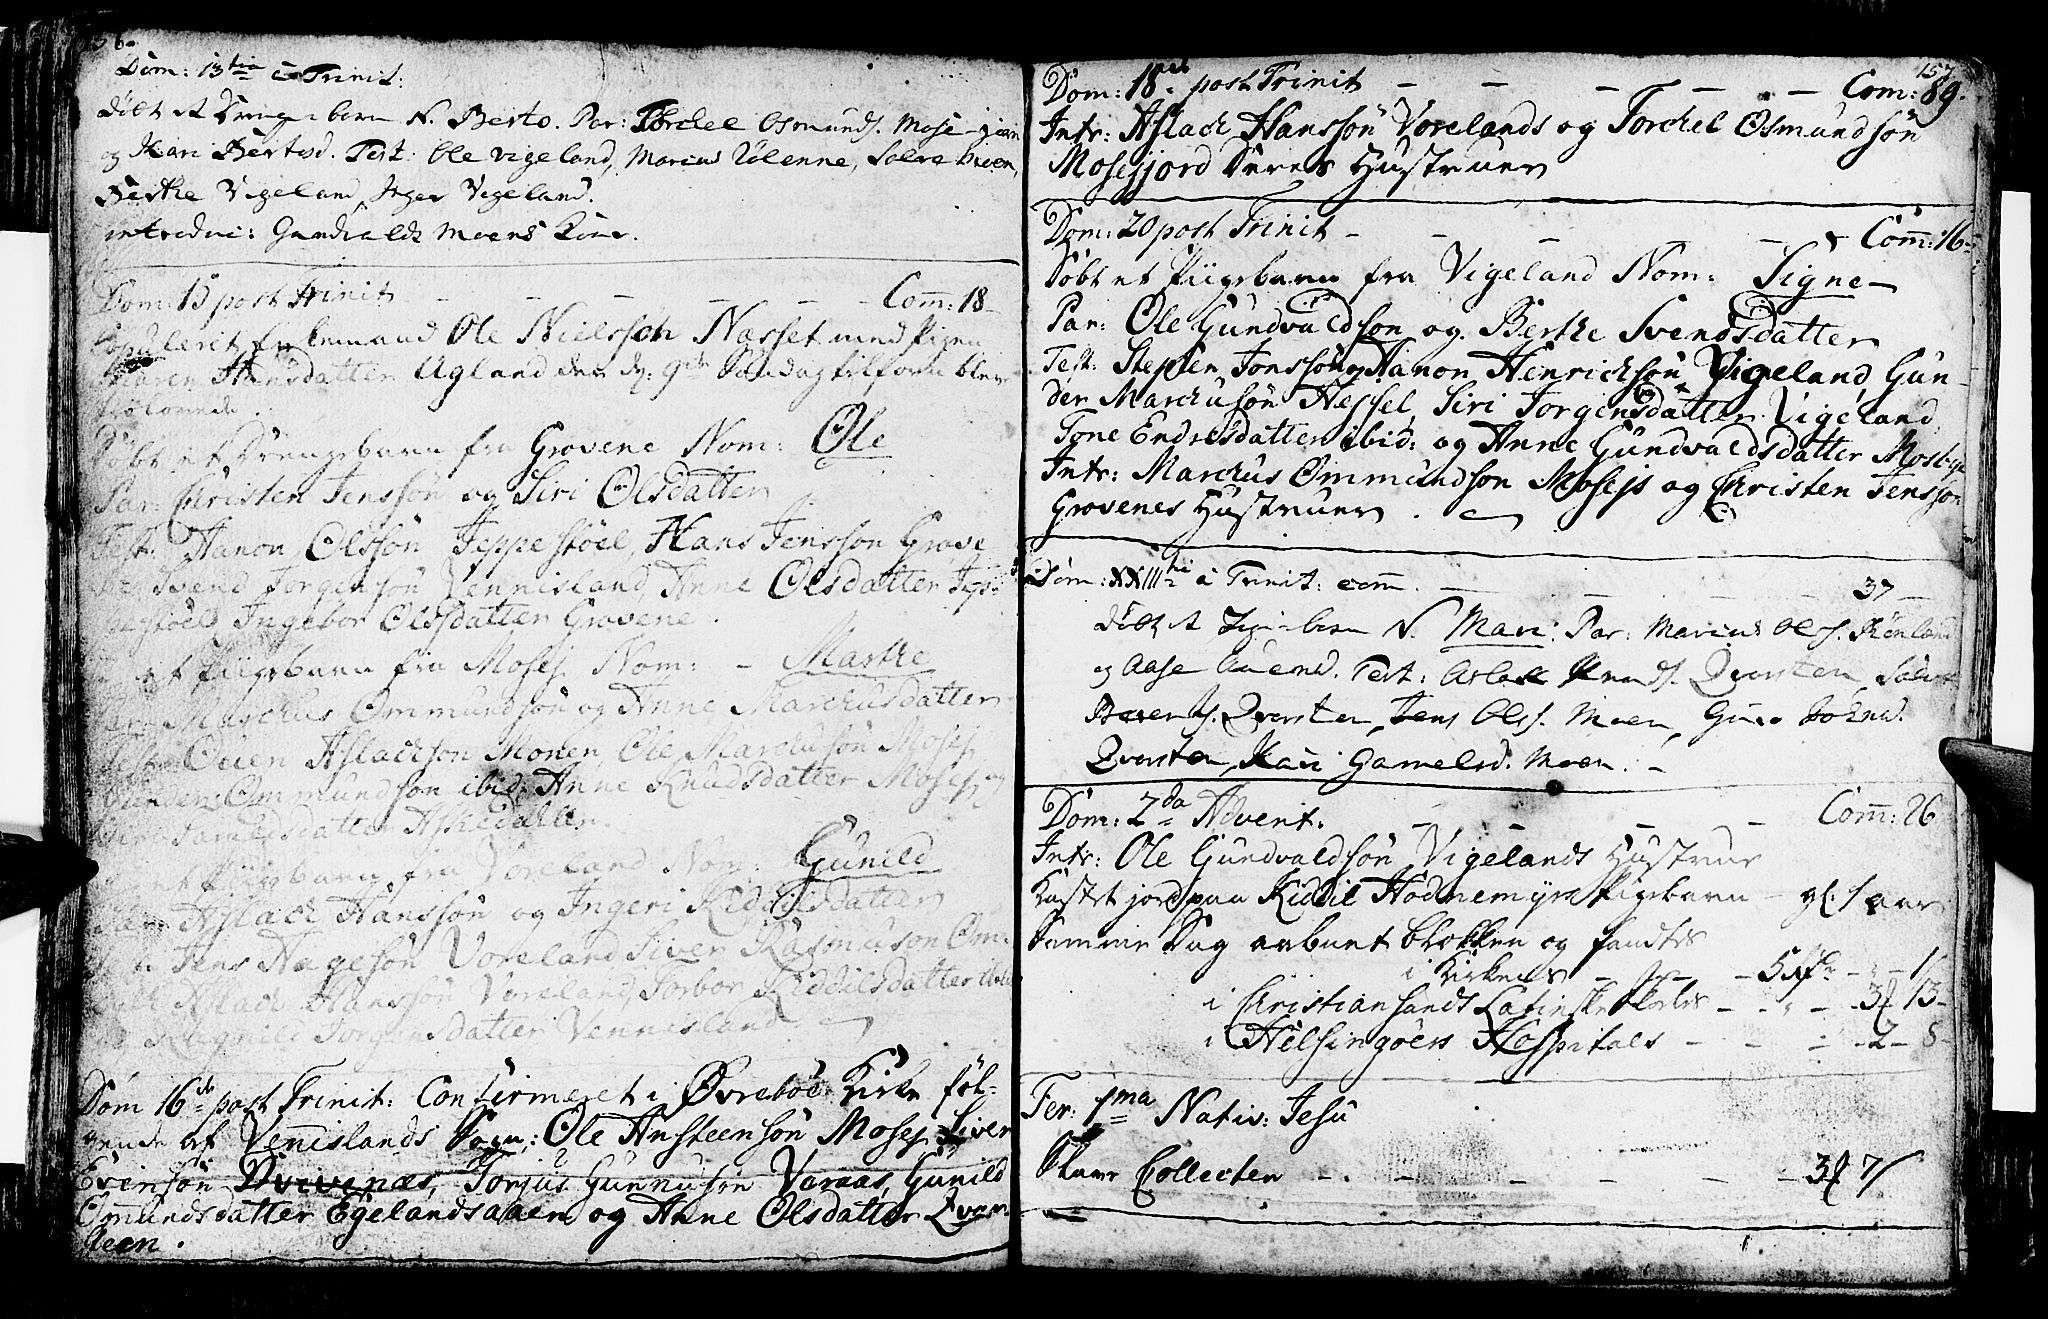 Dom: 13tia à Trinit:
Døbt et Drengebarn N. Berto. Par: Torchel Osmunds. Mosefjorr
og Kari Bertsd. Test: Ole Vigeland, Marcus Rølenne, Salve Moen,
Berthe Vigeland, Inger Vigeland.
introduc: Gundvalds Moens Kone.
Dom: 15 post Trinit - - - - - Com: 18
Copuleret Enkemand Ole Nielssøn Nasset med Pigen
Maren Hansdatter Agland den dj: 9de Søndag tilforn blev
trolovede.
Døbt et Drengebarn fra Grovene Nom: Ole
Par: Christen Jenssøn og Siri Olsdatter
Test: Aanon Olssøn Jeppestøel, Hans Jenssøn Grove
ne, Svend Jorgensøn Vennisland, Anne Olsdatter Jep-
pestøel, Ingebor Olsdatter Grovene.
et Piigebarn fra Mosej Nom: - Marthe
Par: Marchus Ommundsøn og Anne Marchusdatter
Test: Øuen Aslachsøn Monen, Ole Marchusøn Mosej,
Gunder Ommundsøn ibid: Anne Knudsdatter Mosej, og
Siri Samuelsdatter
et Piigebarn fra Voreland Nom: Gunild
Par: Aslach Hanssøn og Ingeri Kiddilsdatter
Test: Jens Aagesøn Voreland Siver Rasmuson Om-
Aslach Hanssøn Voreland, Torbor Kiddilsdatter ibid
og Ragnild Jorgensdatter Vennisland
Dom 16de post Trinit: Confirmeret i Øvrebøe Kirke føl-
gende af Vennislands Sogn: Ole Ansteensøn Mosej, Siver
Evensøn Drivenæs, Torjus Gunnusøn Varaas, Gunild
Ommundsdatter Egelandsaaen og Anne Olsdatter Qvar-
steen.
157
Dom: 18de post Trinit - - - - - Com: 89.
Intr: Aslach Hanssøn Vorelands og Torchel Osmundsøn
Mosefjord Deres Hustruer
Dom: 20 post Trinit - - - - Com: 16
Døbt et Piigebarn fra Vigeland Nom: Signe
Par: Ole Gundvaldsøn og Berthe Svendsdatter
Test: Stephen Jonssøn og Aanon Henrichsøn Vigeland, Gun-
der Marchusøn Hessel, Siri Jorgensdatter Vigeland,
Tone Endresdatter ibid: og Anne Gundvaldsdatter Mosbye
Intr: Marchus Ommundsøn Mosejs og Christen Jenssøn
Grovenes Hustruer.
Dom: XXIIItii à Trinit: com. - - - - 37 -
Døbt et Pigebarn N. Mari. Par: Marcus Olss.
og Aase Auensd. Test: Aslak Knuds. Qvarsten, Salve
Berents. Qvarsten, Jens Olss. Moen, Guro
Qvarsten, Kari Gamelsd. Moen.
Dom: 2da Advent. - - - - Com: 26
Intr: Ole Gundvaldsøn Vigelands Hustrue
Kastet jord paa Kiddil Hodnemyrs Pigebarn - gl: 1 aar
Samme Dag aabnet blokken og fandtes
i Kirkens - - -
i Christiansands Latinske Skoeles - - - 3 13
i Helsingøers Hospitals - - - 2 - 8
Fer: 1ma Nativ: Jesu
Slave Collecten - - - - 3 7